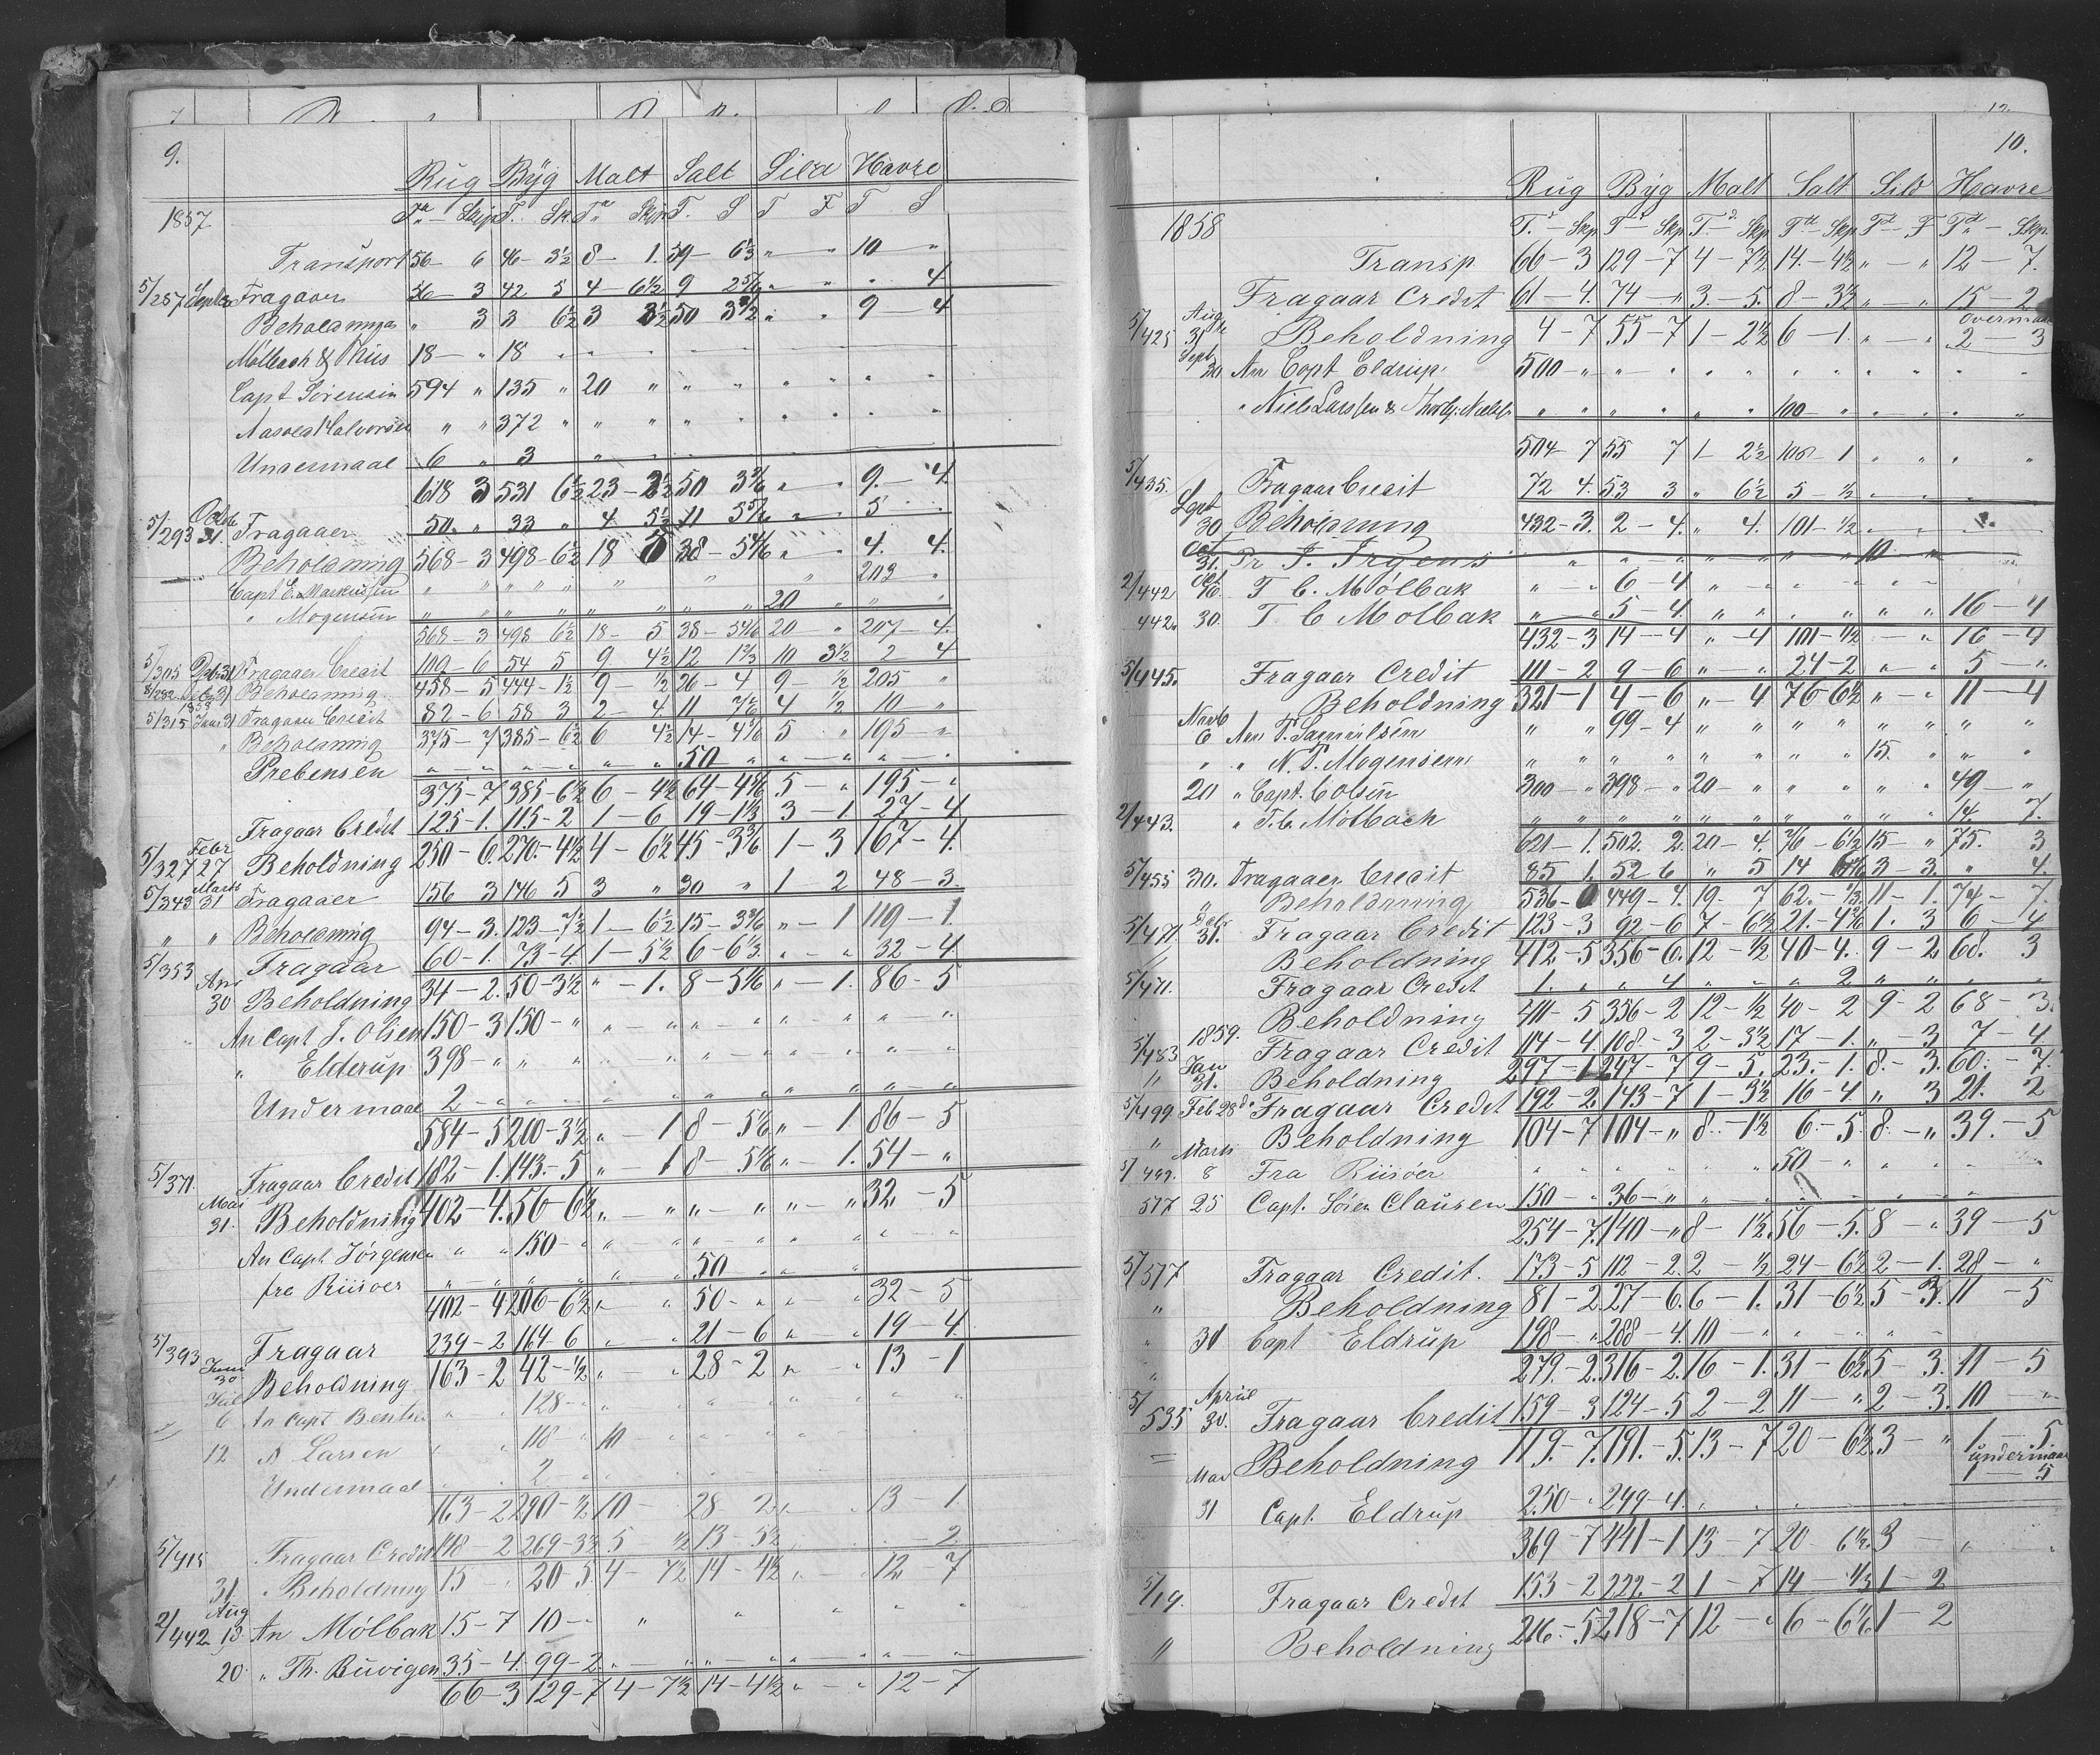 9.
Rug Byg Malt Salt Sild Havre
1857
Transport 56 – 6 46 – 3½ 8 – 1. 59 – 6⅓ „ – „ 10 „
5/257 Septbr Fragaaer 56 – 3 42 5 4 – 6½ 9 2 5/6 „ „ „ 4.
Beholdninga „ 3 3 6½ 3 2½ 50 3 3/6 „ „ 9 – 4
Mølbach & Riis 18 – „ 18 „
Capt Sørensen 594 „ 135 „ 20 „ „ „
Aasold Halvorsen „ „ 372 „ „ „
Undermaal 6 „ 3 „
618 3 531 6½ 23 – 2½ 50 3 3/6 „ „ 9. – 4.
5/293 Octb 31. Fragaaer 50. „ 33 „ 4. 5½ 11 5 5/6 „ „ 5
Beholdning 568 – 3 498 – 6½ 18 5 38 – 5 4/6 „ „ 4. 4.
Capt E. Markussen „ „ „ „ „ „ 203 „
„ Mogensen „ „ „ „ „ „ 20 „ „ „
568 – 3 498 6½ 18 – 5 38 – 5 4/6 20 „ 207 – 4.
5/305 31 Fragaaer Credit 109 – 6 54 5 9 4½ 12 1 2/3 10 3½ 2 4
8/282 31 Beholdning 458 – 5 444 – 1½ 9 ½ 26 – 4 9 – ½ 205 „
1858
5/315 Janr 31 Fragaaer Credit 82 – 6 58 3 2 – 4 11 4 ½ 10 „
„ Beholdning 375 – 7 385 – 6½ 6 4½ 14 – 4 4/6 5 „ 195 – „
Prebensen „ – „ „ – „ „ „ 50 „ „ „ „
375 – 7 385 – 6½ 6 – 4½ 64 – 4 4/6 5 – „ 195 – „
Fragaar Credit 125 – 1. 115 – 2 1 – 6 19 – 1⅓ 3 – 1. 27 – 4
5/327 Febr 27 Beholdning 250 – 6. 270. – 4½ 4 – 6½ 45 – 3 2/6 1 – 3 167 – 4.
5/343 Marts 31 Fragaaer 156 3 146 5 3 „ 30 „ 1 – 2 48 – 3
„ „ Beholdning 94 – 3. 123 – 7½ 1 – 6½ 15 – 3 2/6 „ – 1 119 – 1.
5/353 Fragaar 60 – 1. 73 – 4. 1 – 5½ 6 – 6⅓ „ „ 32 – 4
Apr 30 Beholdning 34 – 2. 50 – 3½ „ – 1. 8 – 5 1/6 „ – 1. 86 – 5
An Capt J. Olsen 150 – 3 150 – „ „ „ „ „
„ Elderup 398 – „ „ „ „ „
Undermaal 2 – „ „ „ „ „
584 – 5 200 – 3½ „ – 1 8 – 5 1/6 „ – 1 86 – 5
5/371. Fragaar Credit 182 – 1. 143. – 5 „ – 1 8 – 5 1/6 „ – 1. 54 – „
Mai 31. Beholdning 402 – 4. 56 – 6½ „ – „ „ – „ „ – „ 32 – 5
An Capt Jørgensen „ „ 150 – „ „ „ „
fra Riisøer „ „ „ „ 50 „ „
402 – 4 206 – 6½ „ „ 50 – „ „ „ 32 – 5
5/393 Fragaar 239 – 2 164 – 6 „ – „ 21 – 6 „ – „ 19 – 4.
Juni 30 Beholdning 163 – 2 42 – ½ „ – „ 28 – 2 „ – „ 13 – 1
Jul 6 An Capt „ „ 128 – „
12 N Larsen „ 118 – „ 10
Undermaal „ 2
163 – 2 290 – ½ 10 – 28 2 „ „ 13 – 1
5/415 Fragaar Credit 148 – 2 269 – 3½ 5 ½ 13 – 5½ 2
31 Beholdning 15 – „ 20 – 5 4 – 7½ 14 – 4½ „ – „ 12 7
2/442 Aug 13 An Mølbak 15 – 7 10 – „ „ „ „
20 „ Th. Buvigen 35 – 4. 99 – 2 „ „ „ „
66 – 3 129 – 7 4 – 7½ 14 – 4½ „ – „ 12 – 7
10.
Rug Byg Malt Salt Sild Havre
1858
T. – Skp T – Skp T – Skp T – Skp T – F T – Skp.
Transp 66 – 3 129 – 7 4 – 7½ 14. – 4½ „ – „ 12 – 7.
Fragaar Credit 61 – 4. 74 – „ 3. – 5. 8 – 3½ „ – „ 15 – 2
overmaal
5/425 Aug 31 Beholdning 4 – 7 55 – 7 1 – 2½ 6 – 1. „ – „ 2 – 3
Septr 20 An Capt Eldrup 500 – „ „ „ „ „
„ Niels Larssen & „ „ „ „ „ „ 100 – „ „ „
504 – 7 55 7 1 2½ 106 – 1 „ „ „ „
5/435. Fragaar Credit 72 4. 53 3 „ 6½ 5 – ½ „ „
Sept 30 Beholdning 432 – 3. 2 – 4. „ 4. 101 – ½ „ „
Oct 31. Pr J. Irgens „ „ „ „ „ „ 10 „
2/442 Oct T C. Mølbak „ „ 6 – 4 „ „ „
442. 30. T C Molbak „ – „ 5 – 4. „ „ „ „ „ „ 16 – 4
432 – 3 14 – 4 „ – 4 101 – ½ „ – „ 16 – 4
5/445. Fragaar Credit 111 – 2 9 – 6 „ „ 24 – 2 „ „ 5 „
Beholdning 321 – 1 4 – 6 „ – 4 76 – 6½ „ – „ 11 – 4
Novb 6 An T. Samuelsen „ „ 99 – 4 „ „ „ „
„ „ N. T. Mogensen „ „ „ „ „ „ 15. „ „ „
20 „ Capt. Colsen 300 – „ 398 – „ 20 – „ „ „ „ 49 – „
2/443. „ T. C. Mølbach „ „ „ „ „ „ 14. 7.
621 – 1. 502. 2. 20 – 4. 76 – 6½ 15 – „ 75. 3
5/455 30. Fragaaer Credit 85 1. 52 6 „ 5 14 3 – 3. „ 4.
„ Beholdning 536 – 0 449 – 4. 19. – 7 62. – ⅓ 11 – 1. 74 – 7.
5/471 31. Fragaar Credit 123 – 3 92 – 6 7 – 6½ 21. – 4 2/6 1. 3 6 – 4
Beholdning 412 – 5 356 – 6. 12 – ½ 40 – 4. 9 – 2 68. 3
5/471. Fragaar Credit 1. „ „ 4 „ „ „ 2 „ „ „ „
Beholdning 411 – 5 356 – 2 12 – ½ 40 – 2 9 – 2 68 – 3.
1859.
5/483 Fragaar Credit 114 – 4 108. – 3 2 – 3½ 17 – 1. „ 3 7 – 4
„ Jan 31. Beholdning 297 – 1 247 – 7 9 – 5. 23. – 1. 8. – 3. 60. – 7.
5/499 Feb 28de Fragaar Credit 192 – 2 143 – 7 1 – 3½ 16 – 4 „ 3 21. 2
„ Beholdning 104 – 7 104 – „ 8 – 1½ 6. – 5. 8. – „ 39. – 5
5/499. Marts 8 Fra Riisøer „ „ „ 50 – „ „
517 25 Capt. Søren Clausen 150 – „ 36 – „ „ „ „
254 – 7. 140 – „ 8 – 1½ 56 – 5. 8 – „ 39 – 5
5/517 Fragaar Credit. 173 – 5 112 – 2. 2 – ½ 24 – 6½ 2 – 1. 28 – „
„ Beholdning 81 – 2. 27 – 6. 6 – 1. 31 – 6½ 5 – 3. 11 – 5
„ 31 Capt Eldrup 198 – „ 288 – 4. 10 – „ „ „
279. – 2. 316 – 2. 16 – 1. 31 – 6½ 5 – 3. 11 – 5
5/535 April 30. Fragaar Credit 159 – 3 124 – 5 2 – 2 11 – „ 2 – 3. 10 – „
Beholdning 119. – 7. 191. – 5. 13 – 7 20 – 6½ 3 – „ 1 – 5
undermaal
1 – 5
Mai 31 Capt. Eldrup 250 – „ 249 – 4. „ „ „
369 – 7 441 – 1 13 – 7 20 – 6½ 3 – „
5/19. Fragaar Credit 153 – 2 222 – 2 1 – 7 14 – ⅓ 1 – 2
„ Beholdning 216. – 5. 218 – 7 12 – „ 6 – 6 1/6 1 – 2